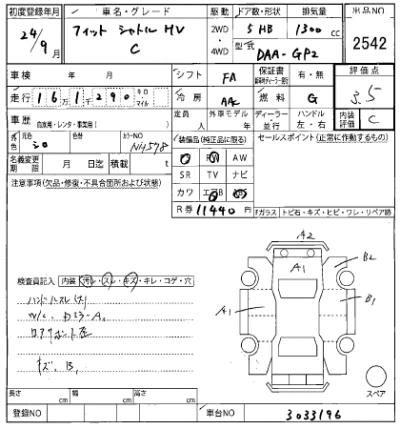 初度登録年月
車名・グレード
駆動
ドア数・形状
排気量
出品NO
24/9月
フィット シャトル HV
C
2WD
・
4WD
5 HB
1300 cc
型式
DAA-GP2
2542
車検 年 月
シフト
FA
保証書
有・無
評価点
3.5
走行
161,290
キロ
マイル
冷房
AAC
燃料
G
内装評価
C
車歴
自家用・レンタ・事業用
定員 人
外車モデル 年
ディーラー
・
並行
ハンドル
左・右
色
元色
シロ
カラーNO
装備品(純正品に限る)
セールスポイント(正常に作動するもの)
名義変更期限
月 日迄
積載 t
AW
SR
TV
ナビ
カワ
R券
11440円
注意事項(欠品・修復・不具合箇所および状態)
Fガラス
トビ石・キズ・ヒビ・ワレ・リペア跡
A2
A1
B2
A1
B1
検査員記入
内装
汚レ・スレ・キズ・キレ・コゲ・穴
ハンドルスレ
キズ、B,
スペア
長さ cm
幅 cm
高さ cm
登録NO
車台NO
3033196